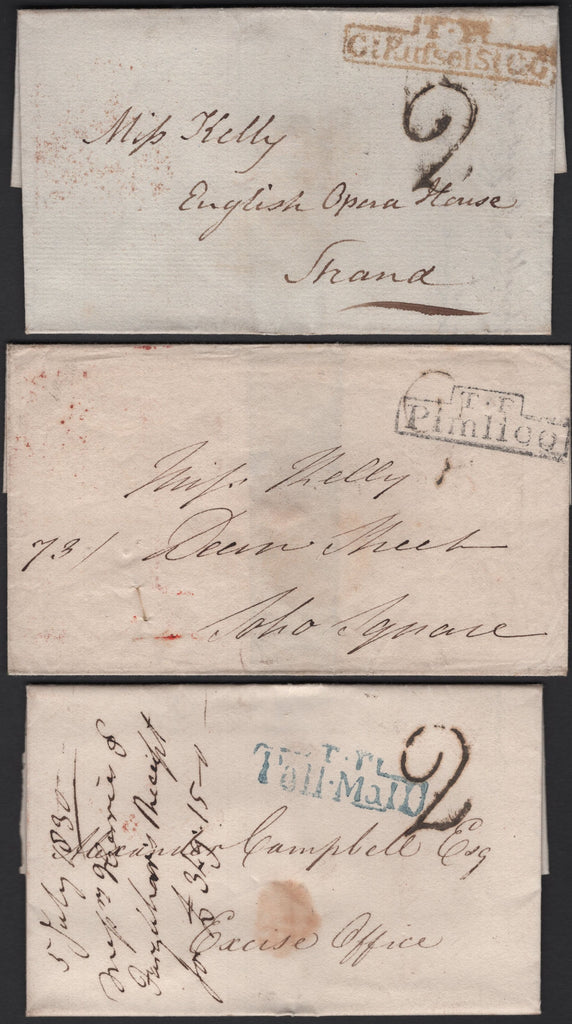 T.P
Gt Russel St C.G
2
Miss Kelly
English Opera House
Strand
T.P
Pimlico
Miss Kelly
73/ Dean Street
Soho Square
T.P.
Pall-Mall
2
Alexander Campbell Esq
Excise Office
5 July 1830
Messrs &
Farquhar's Receipt
for £ 15